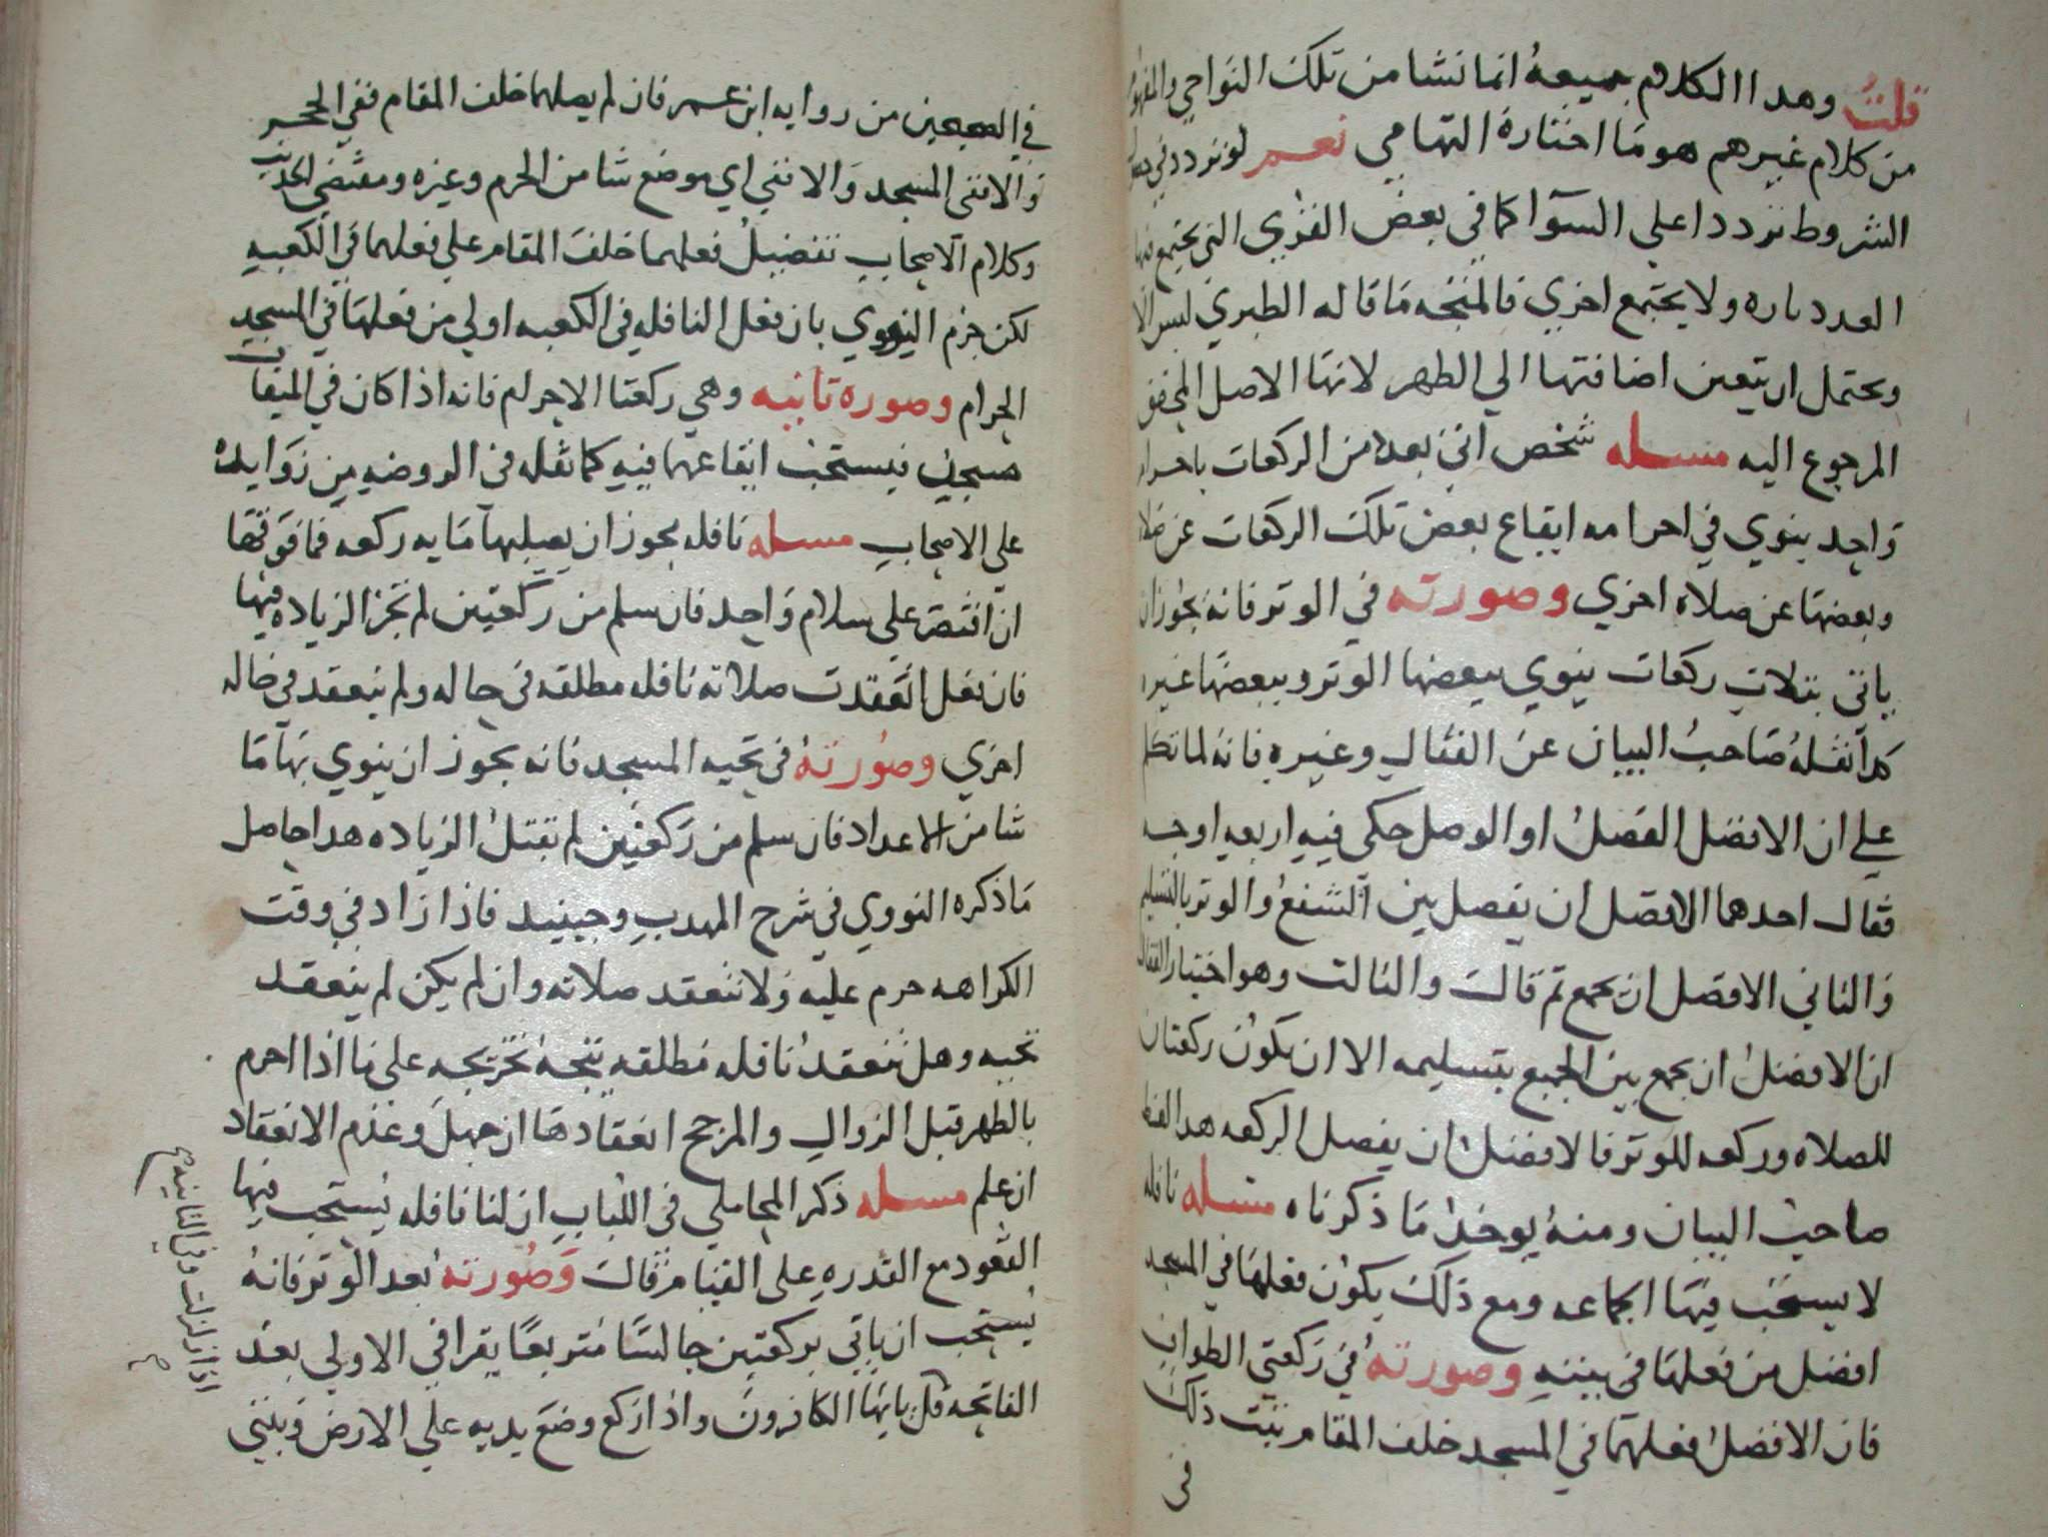 قلت وهدا الكلام جميعه انما نشا من تلك النواحي والمفهوم
من كلام غيرهم هو ما اختاره التهامي نعم لو تردد في
الشروط تردد اعلي السوآ كما في بعض القري التي يجتمع فيها
العدد تاره ولا يجتمع اخري فالمتجه ما قاله الطبري ليس
ويحتمل ان يتعين اضافتها الي الطهر لانها الاصل المحقق
المرجوع اليه مسله شخص اتي بعدد من الركعات باحرام
واحد ينوي في احرامه ايقاع بعض تلك الركعات عن صلاه
وبعضها عن صلاه اخري وصورته في الوتر فانه يجوز ان
ياتي بثلاث ركعات ينوي ببعضها الوتر وببعضها غيره
كدا نقله صاحب البيان عن القفال وغيره فانه لما تكلم
علي ان الافضل الفصل او الوصل حكي فيه اربعه اوجه
فقال احدهما الافضل ان يفصل بين الشفع والوتر بالتسليم
والثاني الافضل ان يجمع ثم قال والثالث وهو اختيار القفال
ان الافضل ان يجمع بين الجميع بتسليمه الا ان يكون ركعتان
للصلاه وركعه للوتر فالافضل ان يفصل الركعه هدا لفظ
صاحب البيان ومنه يوخد ما ذكرناه مسله نافله
لا يستحب فيها الجماعه ومع ذلك يكون فعلها في المسجد
افضل من فعلها في بيته وصورته في ركعتي الطواف
فان الافضل فعلهما في المسجد خلف المقام ثبت ذلك
في
في الصحيحين من روايه ابن عمر فان لم يصلهما خلف المقام ففي الحجر
والا ففي المسجد والا ففي اي موضع شا من الحرم وغيره ومقتضي الحديث
وكلام الاصحاب تفضيل فعلهما خلف المقام علي فعلهما في الكعبه
لكن جزم النووي بان فعل النافله في الكعبه اولي من فعلها في المسجد
الحرام وصوره ثانيه وهي ركعتا الاحرام فانه اذا كان في الميقات
مسجد فيستحب ايقاعهما فيه كما نقله في الروضه من زوايده
علي الاصحاب مسله نافله يجوز ان يصليها مايه ركعه فما فوقها
ان اقتصر علي سلام واحد فان سلم من ركعتين لم تجز الزياده فيها
فان فعل انعقدت صلاته نافله مطلقه في حاله ولم ينعقد في حاله
اخري وصورته في تحيه المسجد فانه يجوز ان ينوي بها ما
شا من الاعداد فان سلم من ركعتين لم تقبل الزياده هدا حاصل
ما ذكره النووي في شرح المهدب وحينيد فاذا زاد في وقت
الكراهه حرم عليه ولا تنعقد صلاته وان لم يكن لم ينعقد
تحيه وهل تنعقد نافله مطلقه يتجه تخريجه علي ما اذا احرم
بالطهر قبل الزوال والمرجح انعقادها ان جهل وعدم الانعقاد
ان علم مسله ذكر المحاملي في اللباب ان لنا نافله يستحب فيها
القعود مع القدره علي القيام قال وصورته بعد الوتر فانه
يستحب ان ياتي بركعتين جالسا متربعا يقرا في الاولي بعد
الفاتحه قل يايها الكافرون واذا ركع وضع يديه علي الارض ويثني
اذا زلزلت وفي الثانيه